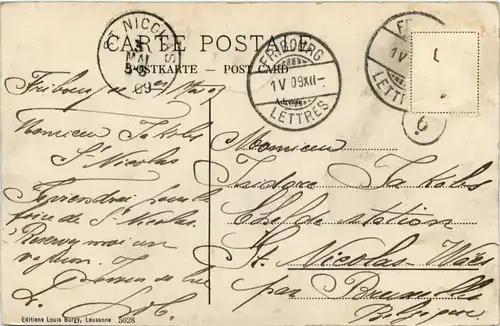 CARTE POSTALE
POSTKARTE — POST CARD
Adresse
ST NICOLAS
3
MAI
09
FRIBOURG
1 V 09 XII-
LETTRES
1 V
LETT
9
Fribourg
Monsieur Jakobs
St Nicolas
Je viendrai pour la
foire de St Nicolas.
Réservez moi un
Monsieur
Isidore Jakobs
Chef de station
St. Nicolas-Waes
par Bruxelles
Belgique.
Editions Louis Burgy, Lausanne 5028